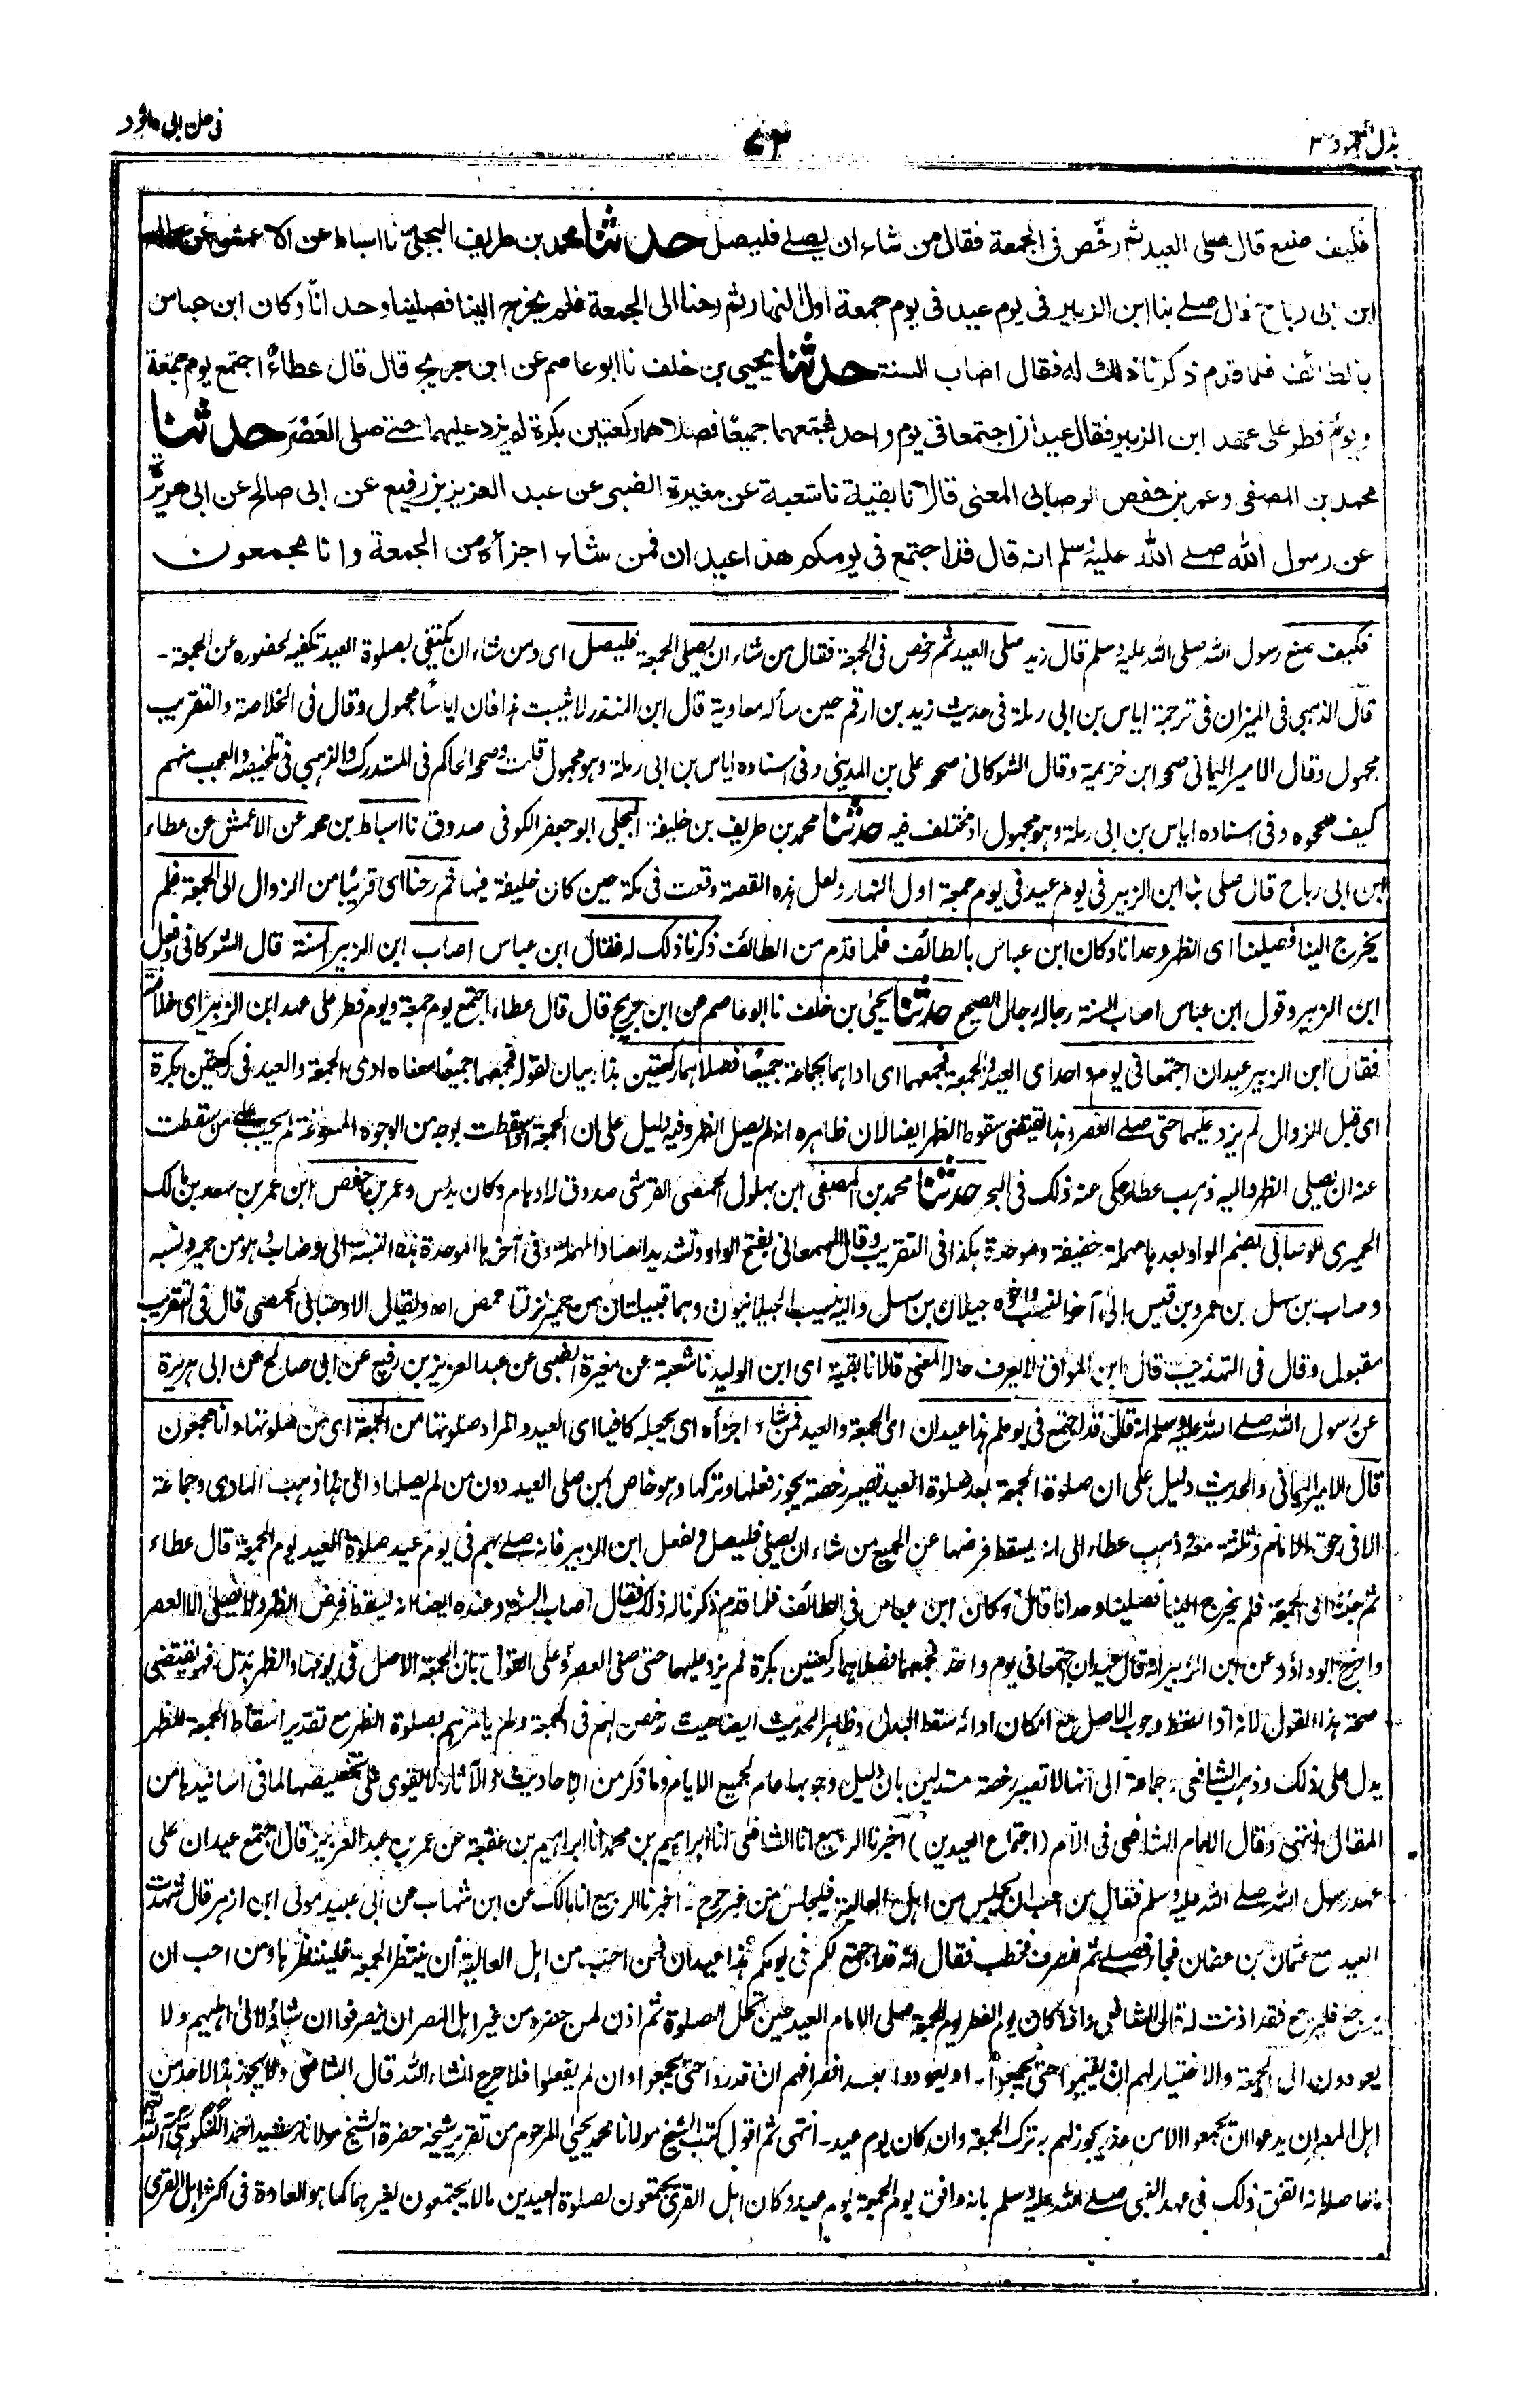 بذل المجهود ٣
٧٢
في حل ابي داؤد
فكيف صنع قال صلى العيد ثم رخّص فى الجمعة فقال من شاء ان يصلے فليصل حدثنا محمد بن طريف البجلي نا اسباط عن الاعمش عن عطاء
ابن ابى رباح قال صلے بنا ابن الزبير فى يوم عيد فى يوم جمعة اول النهار ثم رحنا الى الجمعة فلم يخرج الينا فصلينا وحدانًا وكان ابن عباس
بالطائف فلما قدم ذكرنا ذلك له فقال اصاب السنة حدثنا يحيى بن خلف نا ابو عاصم عن ابن جريج قال قال عطاء اجتمع يوم جمعة
ويوم فطر على عهد ابن الزبير فقال عيدان اجتمعا فى يوم واحد فجمعهما جميعًا فصلاهما ركعتين بكرة لم يزد عليهما حتى صلى العَصْرَ حدثنا
محمد بن المصفى وعمر بن حفص الوصابى المعنى قالا نا بقية نا شعبة عن مغيرة الضبى عن عبد العزيز بن رفيع عن ابى صالح عن ابى هريرة
عن رسول الله صلے الله عليه وسلم انه قال قد اجتمع فى يومكم هذا عيدان فمن شاء اجزأه من الجمعة وانا مجمعون
فكيف صنع رسول الله صلى الله عليه وسلم قال زيد صلى العيد ثم رخص فى الجمعة فقال من شاء ان يصلى الجمعة فليصل اى ومن شاء ان يكتفى بصلوة العيد تكفيه لحضوره عن الجمعة -
قال الذهبى فى الميزان فى ترجمة اياس بن ابى رملة فى حديث زيد بن ارقم حين سأله معاوية قال ابن المنذر لا يثبت هذا فان اياسًا مجهول وقال فى الخلاصة والتقريب
مجهول وقال الامير اليمانى صححه ابن خزيمة وقال الشوكانى صححه على بن المدينى وفى اسناده اياس بن ابى رملة وهو مجهول قلت وصححه الحاكم فى المستدرك والذهبى فى تلخيصه والعجب منهم
كيف صححوه وفى اسناده اياس بن ابى رملة وهو مجهول او مختلف فيه حدثنا محمد بن طريف بن خليفة البجلى ابو جعفر الكوفى صدوق نا اسباط بن محمد عن الاعمش عن عطاء
ابن ابى رباح قال صلى بنا ابن الزبير فى يوم عيد فى يوم جمعة اول النهار ولعل هذه القصة وقعت فى مكة حين كان خليفة فيها ثم رحنا اى قريبًا من الزوال الى الجمعة فلم
يخرج الينا فصلينا اى الظهر وحدانا وكان ابن عباس بالطائف فلما قدم من الطائف ذكرنا ذلك له فقال ابن عباس اصاب ابن الزبير السنة قال الشوكانى وفعل
ابن الزبير وقول ابن عباس اصاب السنة رجاله رجال الصحيح حدثنا يحيى بن خلف نا ابو عاصم عن ابن جريج قال قال عطاء اجتمع يوم جمعة ويوم فطر على عهد ابن الزبير اى خلافته
فقال ابن الزبير عيدان اجتمعا فى يوم واحد اى العيد والجمعة فجمعهما اى اداهما بجماعة جميعًا فصلاهما ركعتين هذا بيان لقوله فجمعهما جميعًا معناه ادى الجمعة والعيد فى ركعتين بكرة
اى قبل الزوال لم يزد عليهما حتى صلے العصر وهذا يقتضى سقوط الظهر ايضا لان ظاهره انه لم يصل الظهر وفيه دليل على ان الجمعة اذا سقطت بوجه من الوجوه المسوغة لم يجب على من سقطت
عنه ان يصلى الظهر واليه ذهب عطاء حكى عنه ذلك فى البحر حدثنا محمد بن المصفى ابن بهلول الحمصى القرشى صدوق له اوهام وكان يدلس وعمر بن حفص ابن عمر بن سعد بن مالك
الحميرى الوصابى بضم الواو بعدها مهملة خفيفة وموحدة هكذا فى التقريب وقال السمعانى بفتح الواو وتشديد الصاد المهملة وفى آخرها الموحدة هذه النسبة الى وصاب وهو من حمير ونسبه
وصاب بن سهل بن عمرو بن قيس الى آخر النسب واخوه جبلان بن سهل واليه ينسب الجبلانيون وهما قبيلتان من حمير نزلتا حمص اه ويقال الاوصابى الحمصى قال فى التقريب
مقبول وقال فى التهذيب قال ابن المواق لا يعرف حاله المعنى قالا نا بقية اى ابن الوليد نا شعبة عن مغيرة الضبى عن عبد العزيز بن رفيع عن ابى صالح عن ابى هريرة
عن رسول الله صلے الله عليه وسلم انه قال قد اجتمع فى يومكم هذا عيدان اى الجمعة والعيد فمن شاء اجزأه اى يجعله كافيا اى العيد والمراد صلوتها من الجمعة اى من صلوتها وانا مجمعون
قال الامير اليمانى والحديث دليل على ان صلوة الجمعة بعد صلوة العيد تصير رخصة يجوز فعلها وتركها وهو خاص لمن صلى العيد دون من لم يصلها والى هذا ذهب الهادى وجماعة
الا فى حق الامام وثلثة معه وذهب عطاء الى انه يسقط فرضها عن الجميع من شاء ان يصلى فليصل ولفعل ابن الزبير فانه صلے بهم فى يوم عيد صلوة العيد يوم الجمعة قال عطاء
ثم جئنا الى الجمعة فلم يخرج الينا فصلينا وحدانا قال وكان ابن عباس فى الطائف فلما قدم ذكرنا له ذلك فقال اصاب السنة وعنده ايضا انه يسقط فرض الظهر ولا يصلى الا العصر
واخرج ابو داؤد عن ابن الزبير انه قال عيدان اجتمعا فى يوم واحد فجمعهما فصلاهما ركعتين بكرة لم يزد عليهما حتى صلى العصر وعلى القول بان الجمعة الاصل فى يومها والظهر بدل فهو يقتضى
صحة هذا القول لانه اذا سقط وجوب الاصل مع امكان ادائه سقط البدل وظاهر الحديث ايضا حيث رخص لهم فى الجمعة ولم يأمرهم بصلوة الظهر مع تقدير اسقاط الجمعة للظهر
يدل على ذلك وذهب الشافعى وجماعة الى انها لا تصير رخصة مستدلين بان دليل وجوبها عام لجميع الايام وما ذكر من الاحاديث والآثار لا يقوى على تخصيصها لما فى اسانيدها من
المقال انتهى وقال الامام الشافعى فى الام (اجتماع العيدين) اخبرنا الربيع انا الشافعى انا ابراهيم بن محمد انا ابراهيم بن عقبة عن عمر بن عبد العزيز قال اجتمع عيدان على
عهد رسول الله صلے الله عليه وسلم فقال من احب ان يجلس من اهل العالية فليجلس من غير حرج - اخبرنا الربيع انا مالك عن ابن شهاب عن ابى عبيد مولى ابن ازهر قال شهدت
العيد مع عثمان بن عفان فجاء فصلے ثم انصرف فخطب فقال انه قد اجتمع لكم فى يومكم هذا عيدان فمن احب من اهل العالية ان ينتظر الجمعة فلينتظرها ومن احب ان
يرجع فليرجع فقد اذنت له قال الشافعى واذا كان يوم الفطر يوم الجمعة صلى الامام العيد حين تحل الصلوة ثم اذن لمن حضره من غير اهل المصر ان ينصرفوا ان شاؤا الى اهليهم ولا
يعودون الى الجمعة والاختيار لهم ان يقيموا حتى يجمعوا - او يعودوا بعد انصرافهم ان قدروا حتى يجمعوا وان لم يفعلوا فلا حرج انشاء الله قال الشافعى ولا يجوز هذا لاحد من
اهل المصر ان يدعوا ان يجمعوا الا من عذر يجوز لهم به ترك الجمعة وان كان يوم عيد - انتهى ثم اقول كتب الشيخ مولانا محمد يحيى المرحوم من تقرير شيخه حضرة الشيخ مولانا رشيد احمد الگنگوهى رحمه الله
ما حاصله انه اتفق ذلك فى عهد النبى صلے الله عليه وسلم بانه وافق يوم الجمعة يوم عيد وكان اهل القرى يجتمعون لصلوة العيدين ما لا يجتمعون لغيرهما كما هو العادة فى اكثر اهل القرى